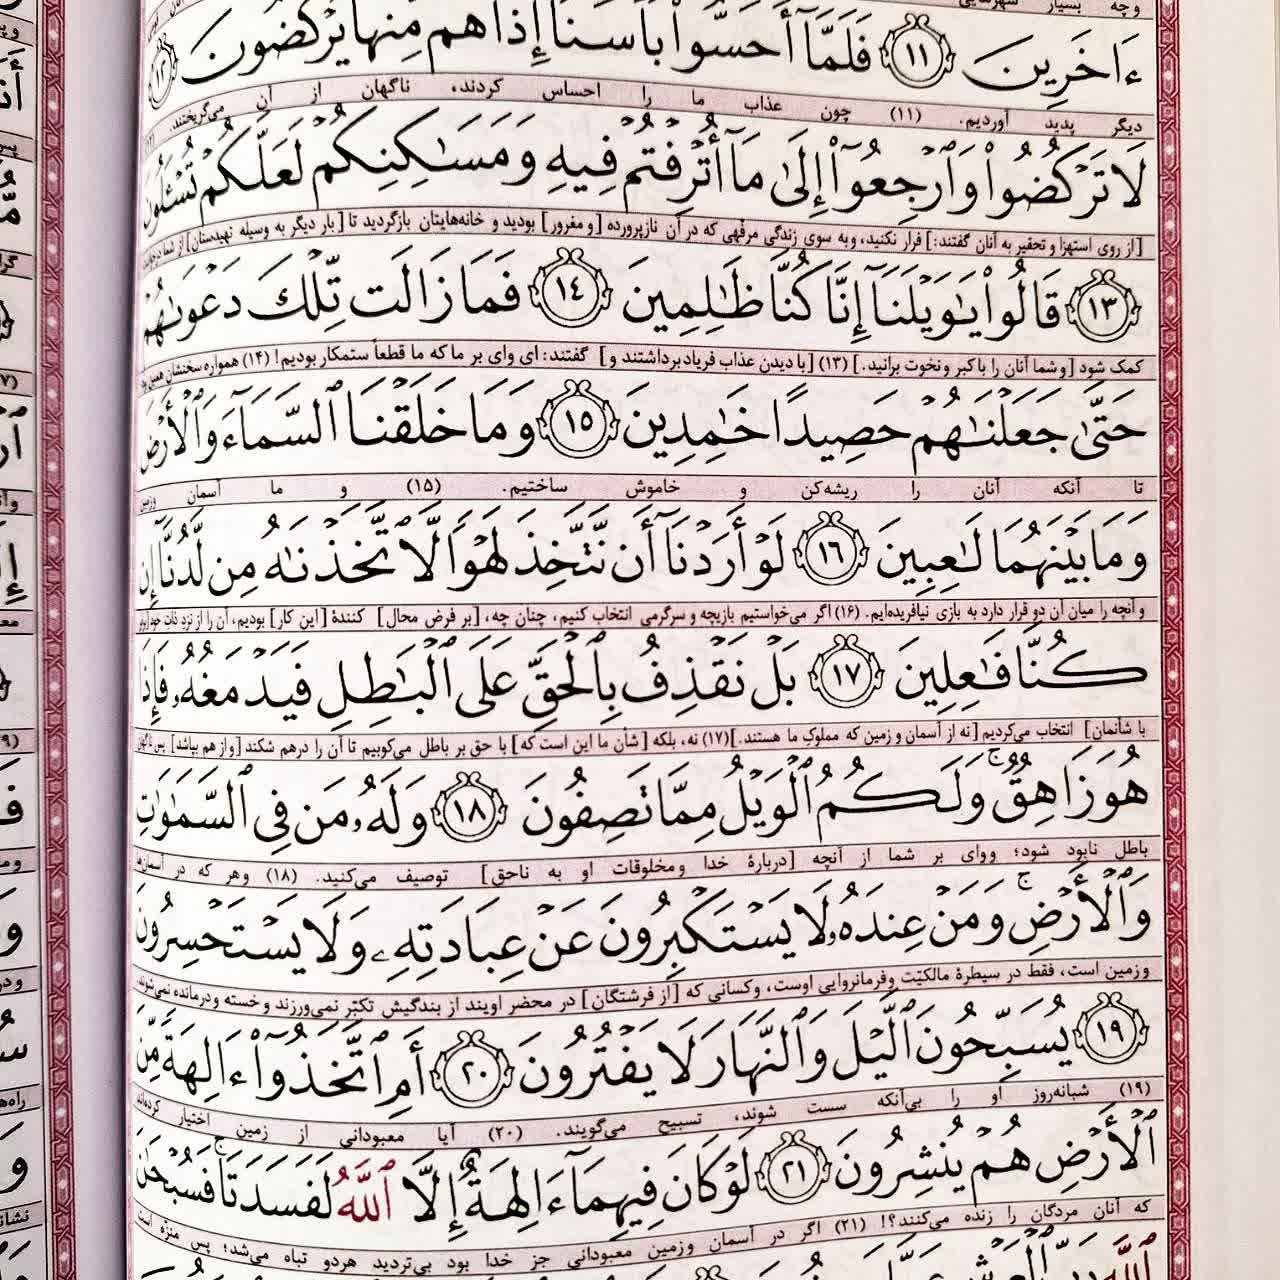 وچه بسیار
ءَاخَرِينَ ۝١١ فَلَمَّآ أَحَسُّوا۟ بَأْسَنَآ إِذَا هُم مِّنْهَا يَرْكُضُونَ ۝١٢
دیگر پدید آوردیم. (۱۱) چون عذاب ما را احساس کردند، ناگهان از آن می‌گریختند. (۱۲)
لَا تَرْكُضُوا۟ وَٱرْجِعُوٓا۟ إِلَىٰ مَآ أُتْرِفْتُمْ فِيهِ وَمَسَٰكِنِكُمْ لَعَلَّكُمْ تُسْـَٔلُونَ
[از روی استهزا و تحقیر به آنان گفتند:] فرار نکنید، وبه سوی زندگی مرفّهی که در آن نازپرورده [و مغرور] بودید و خانه‌هایتان بازگردید تا [بار دیگر به وسیله تهیدستان] از شما درخواست
۝١٣ قَالُوا۟ يَٰوَيْلَنَآ إِنَّا كُنَّا ظَٰلِمِينَ ۝١٤ فَمَا زَالَت تِّلْكَ دَعْوَىٰهُمْ
کمک شود [و شما آنان را با کبر و نخوت برانید.] (۱۳) [با دیدن عذاب فریاد برداشتند و] گفتند: ای وای بر ما که ما قطعاً ستمکار بودیم! (۱۴) همواره سخنشان همین بود
حَتَّىٰ جَعَلْنَٰهُمْ حَصِيدًا خَٰمِدِينَ ۝١٥ وَمَا خَلَقْنَا ٱلسَّمَآءَ وَٱلْأَرْضَ
تا آنکه آنان را ریشه‌کن و خاموش ساختیم. (۱۵) و ما آسمان وزمین
وَمَا بَيْنَهُمَا لَٰعِبِينَ ۝١٦ لَوْ أَرَدْنَآ أَن نَّتَّخِذَ لَهْوًا لَّٱتَّخَذْنَٰهُ مِن لَّدُنَّآ إِن
و آنچه را میان آن دو قرار دارد به بازی نیافریده‌ایم. (۱۶) اگر می‌خواستیم بازیچه و سرگرمی انتخاب کنیم، چنان چه، [بر فرض محال] کنندهٔ [این کار] بودیم، آن را از نزدِ ذاتِ خود
كُنَّا فَٰعِلِينَ ۝١٧ بَلْ نَقْذِفُ بِٱلْحَقِّ عَلَى ٱلْبَٰطِلِ فَيَدْمَغُهُۥ فَإِذَا
با شأنمان] انتخاب می‌کردیم [نه از آسمان و زمین که مملوکِ ما هستند.] (۱۷) نه، بلکه [شأن ما این است که] با حق بر باطل می‌کوبیم تا آن را درهم شکند [و از هم بپاشد] پس ناگهان
هُوَ زَاهِقٌ ۚ وَلَكُمُ ٱلْوَيْلُ مِمَّا تَصِفُونَ ۝١٨ وَلَهُۥ مَن فِى ٱلسَّمَٰوَٰتِ
باطل نابود شود؛ ووای بر شما از آنچه [دربارهٔ خدا ومخلوقات او به ناحق] توصیف می‌کنید. (۱۸) وهر که در آسمان‌ها
وَٱلْأَرْضِ ۚ وَمَنْ عِندَهُۥ لَا يَسْتَكْبِرُونَ عَنْ عِبَادَتِهِۦ وَلَا يَسْتَحْسِرُونَ
وزمین است، فقط در سیطرهٔ مالکیّت وفرمانروایی اوست، وکسانی که [از فرشتگان] در محضر اویند از بندگیش تکبّر نمی‌ورزند و خسته و درمانده نمی‌شوند.
۝١٩ يُسَبِّحُونَ ٱلَّيْلَ وَٱلنَّهَارَ لَا يَفْتُرُونَ ۝٢٠ أَمِ ٱتَّخَذُوٓا۟ ءَالِهَةً مِّنَ
(۱۹) شبانه‌روز او را بی‌آنکه سست شوند، تسبیح می‌گویند. (۲۰) آیا معبودانی از زمین اختیار کرده‌اند
ٱلْأَرْضِ هُمْ يُنشِرُونَ ۝٢١ لَوْ كَانَ فِيهِمَآ ءَالِهَةٌ إِلَّا ٱللَّهُ لَفَسَدَتَا ۚ فَسُبْحَٰنَ
که آنان مردگان را زنده می‌کنند؟! (۲۱) اگر در آسمان وزمین معبودانی جز خدا بود بی‌تردید هردو تباه می‌شد؛ پس منزّه است
ٱللَّهِ رَبِّ ٱلْعَرْشِ